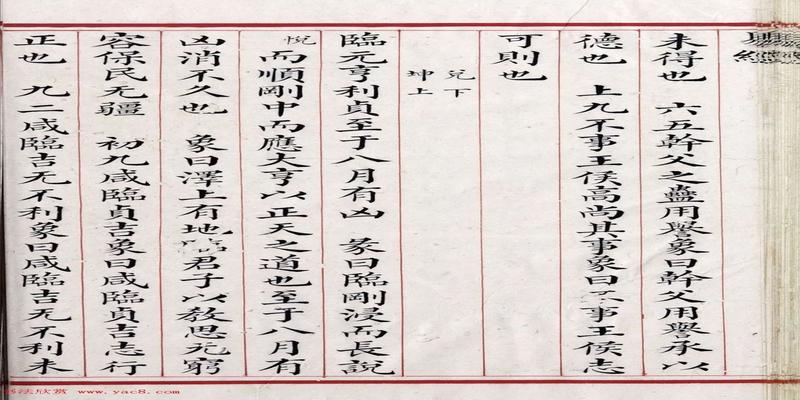 未得也 六五幹父之蠱用譽象曰幹父用譽承以
德也 上九不事王侯高尚其事象曰不事王侯志
可則也
兌下
坤上
臨元亨利貞至于八月有凶 彖曰臨剛浸而長說
悅
而順剛中而應大亨以正天之道也至于八月有
凶消不久也 象曰澤上有地臨君子以教思无窮
容保民无疆 初九咸臨貞吉象曰咸臨貞吉志行
正也 九二咸臨吉无不利象曰咸臨吉无不利未
书法欣赏 www.yac8.com